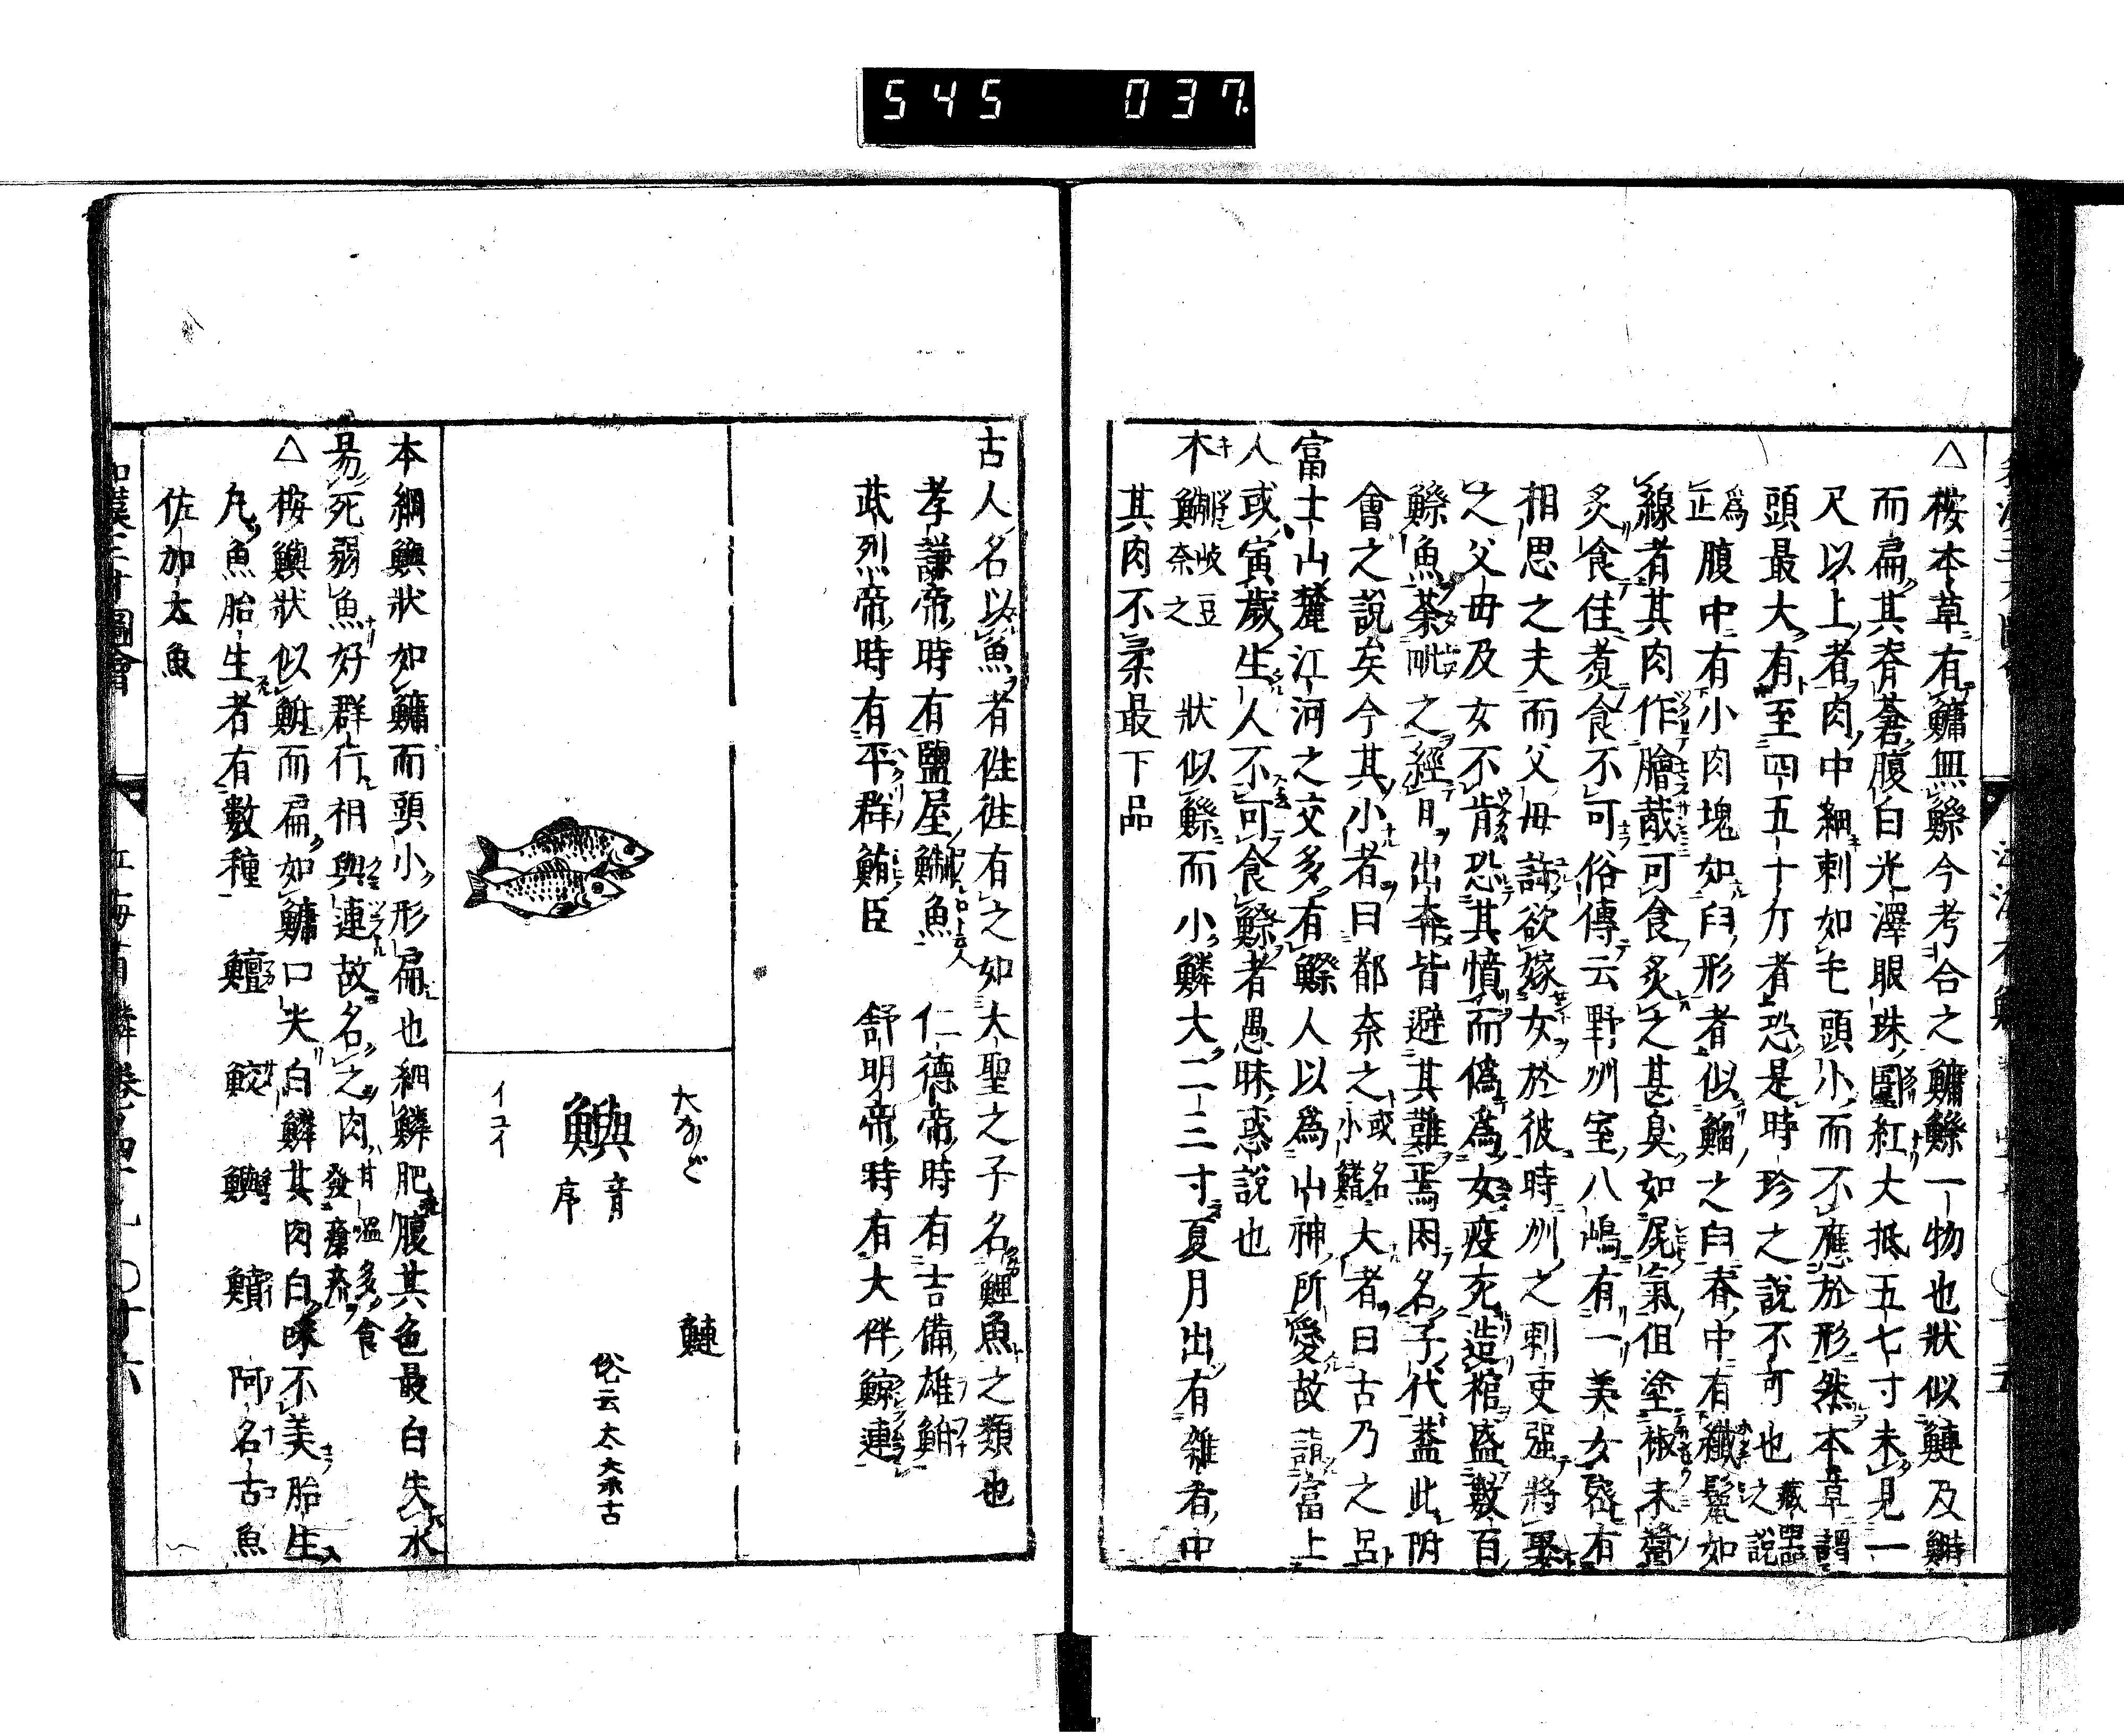 545 037
△桉本草有鱅無鰶今考合之鱅鰶一物也狀似鰱及鰣
而扁其脊蒼腹白光澤眼珠圓紅大抵五七寸未見一
尺以上者肉中細刺如毛頭小而不應於形然本草謂
頭最大有至四五十斤者恐是時珍之說不可也藏器之說
爲正腹中有小肉塊如臼形者似鰡之臼脊中有纎鬛如
線者其肉作膾蔵可食炙之甚臭如屍氣但塗椒未醬
炙食佳煑食不可俗傳云野州室八嶋有一美女嘗有
相思之夫而父毋許欲嫁女於彼時州之刺吏强將娶
之父毋及女不肯恐其憤而僞爲女疫死造棺盛數百
鰶魚荼毗之經日出奔皆避其難焉因名子代葢此附
會之說矣今其小者曰都奈之或名小鰭大者曰古乃之呂
富士山麓江河之交多有鰶人以爲山神所愛故詣富士
人或寅歲生人不可食鰶者愚昧惑說也
木鰤 岐豆奈之 狀似鰶而小鱗大二三寸夏月出有雜肴中
其肉不柔最下品
古人名以魚者徃徃有之如大聖之子名鯉魚之類也
孝謙帝時有鹽屋鰤魚 仁德帝時有吉備雄鮒
武烈帝時有平群鮪臣 舒明帝時有大伴鯨連
たなご
鱮 音序
イユイ
鰱
俗云太奈古
本綱鱮狀如鱅而頭小形扁也細鱗肥腹其色最白失水
易死弱魚好群行相與連故名之肉甘溫多食發瘡疥
△桉鱮狀似鮒而扁如鱅口尖白鱗其肉白味不美胎生
凡魚胎生者有數種 鱣 鮫 鱮 鱝 阿名古魚
佐加太魚